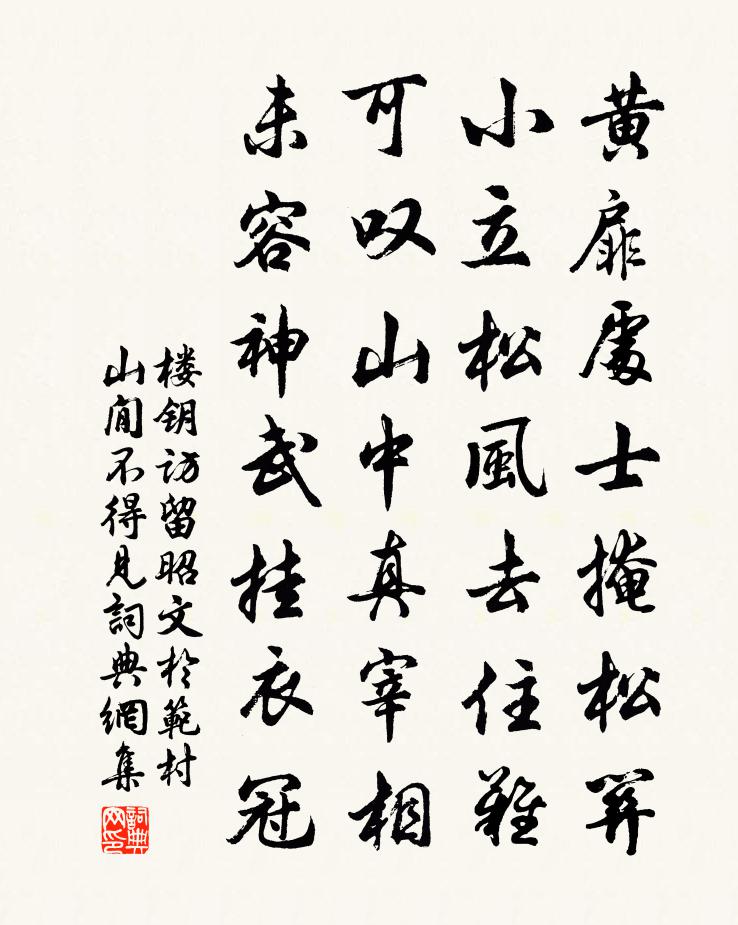 黄扉處士掩松關
小立松風去住難
可叹山中真宰相
未容神武挂衣冠
楼钥访留昭文於範村
山閒不得見詞典網集
詞典网印